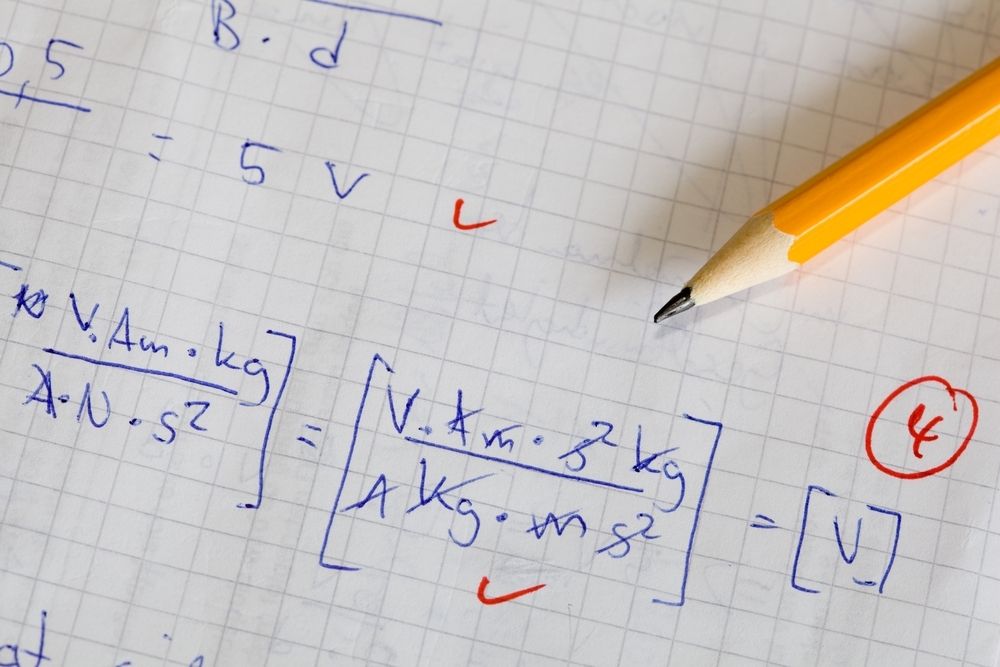 B · d
0,5
= 5 V
V · Am · kg
A · N · s²
] = [
V · Am · s² kg
A kg · m s²
] = [V]
4
at